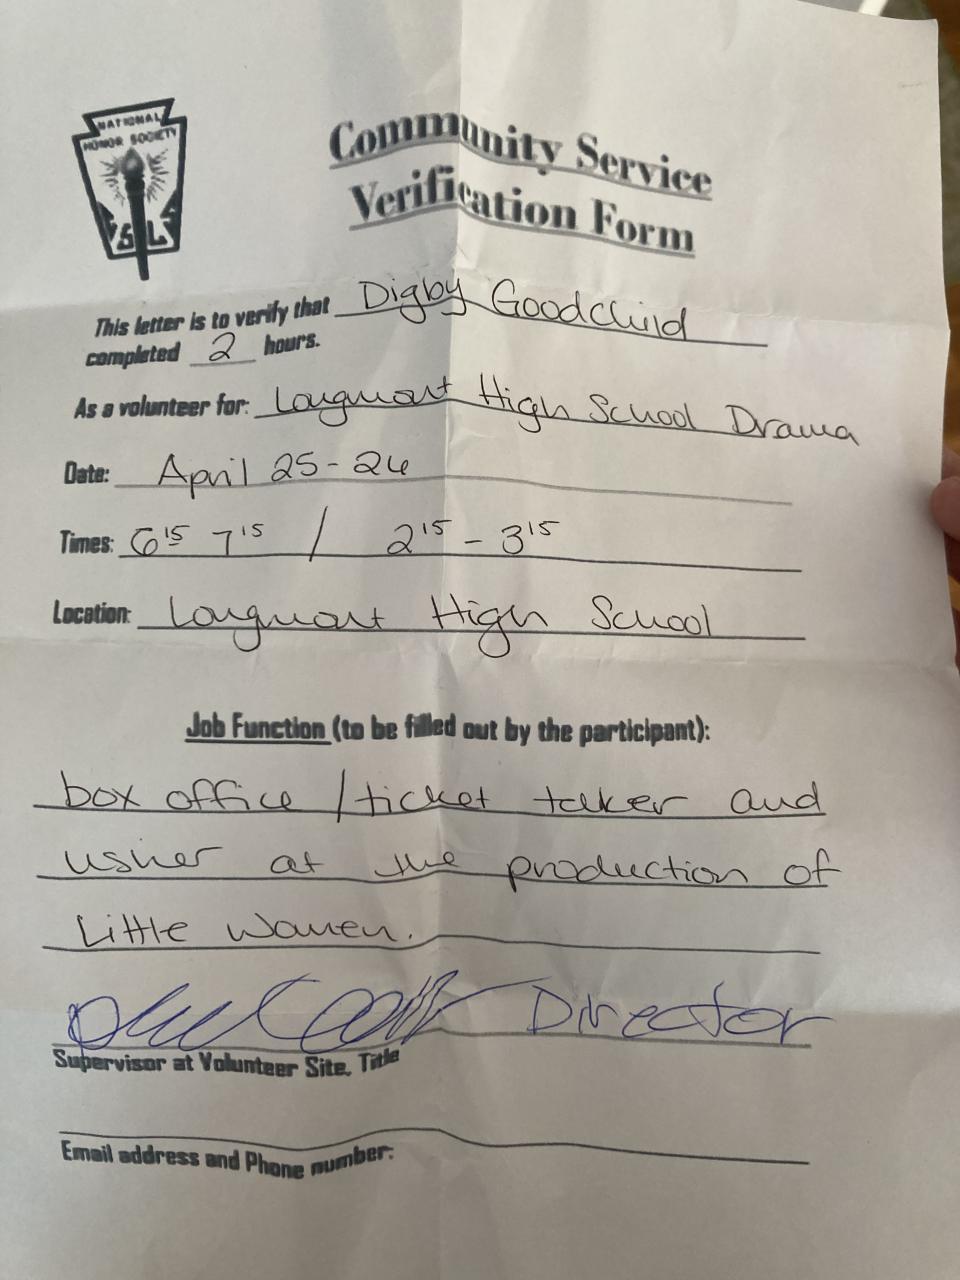 NATIONAL
HONOR SOCIETY
Community Service
Verification Form
This letter is to verify that Digby Goodchild
completed 2 hours.
As a volunteer for: Longmont High School Drama
Date: April 25-26
Times: 6¹⁵ 7¹⁵ / 2¹⁵ - 3¹⁵
Location: Longmont High School
Job Function (to be filled out by the participant):
box office / ticket taker and
usher at the production of
Little Women.
Director
Supervisor at Volunteer Site, Title
Email address and Phone number: